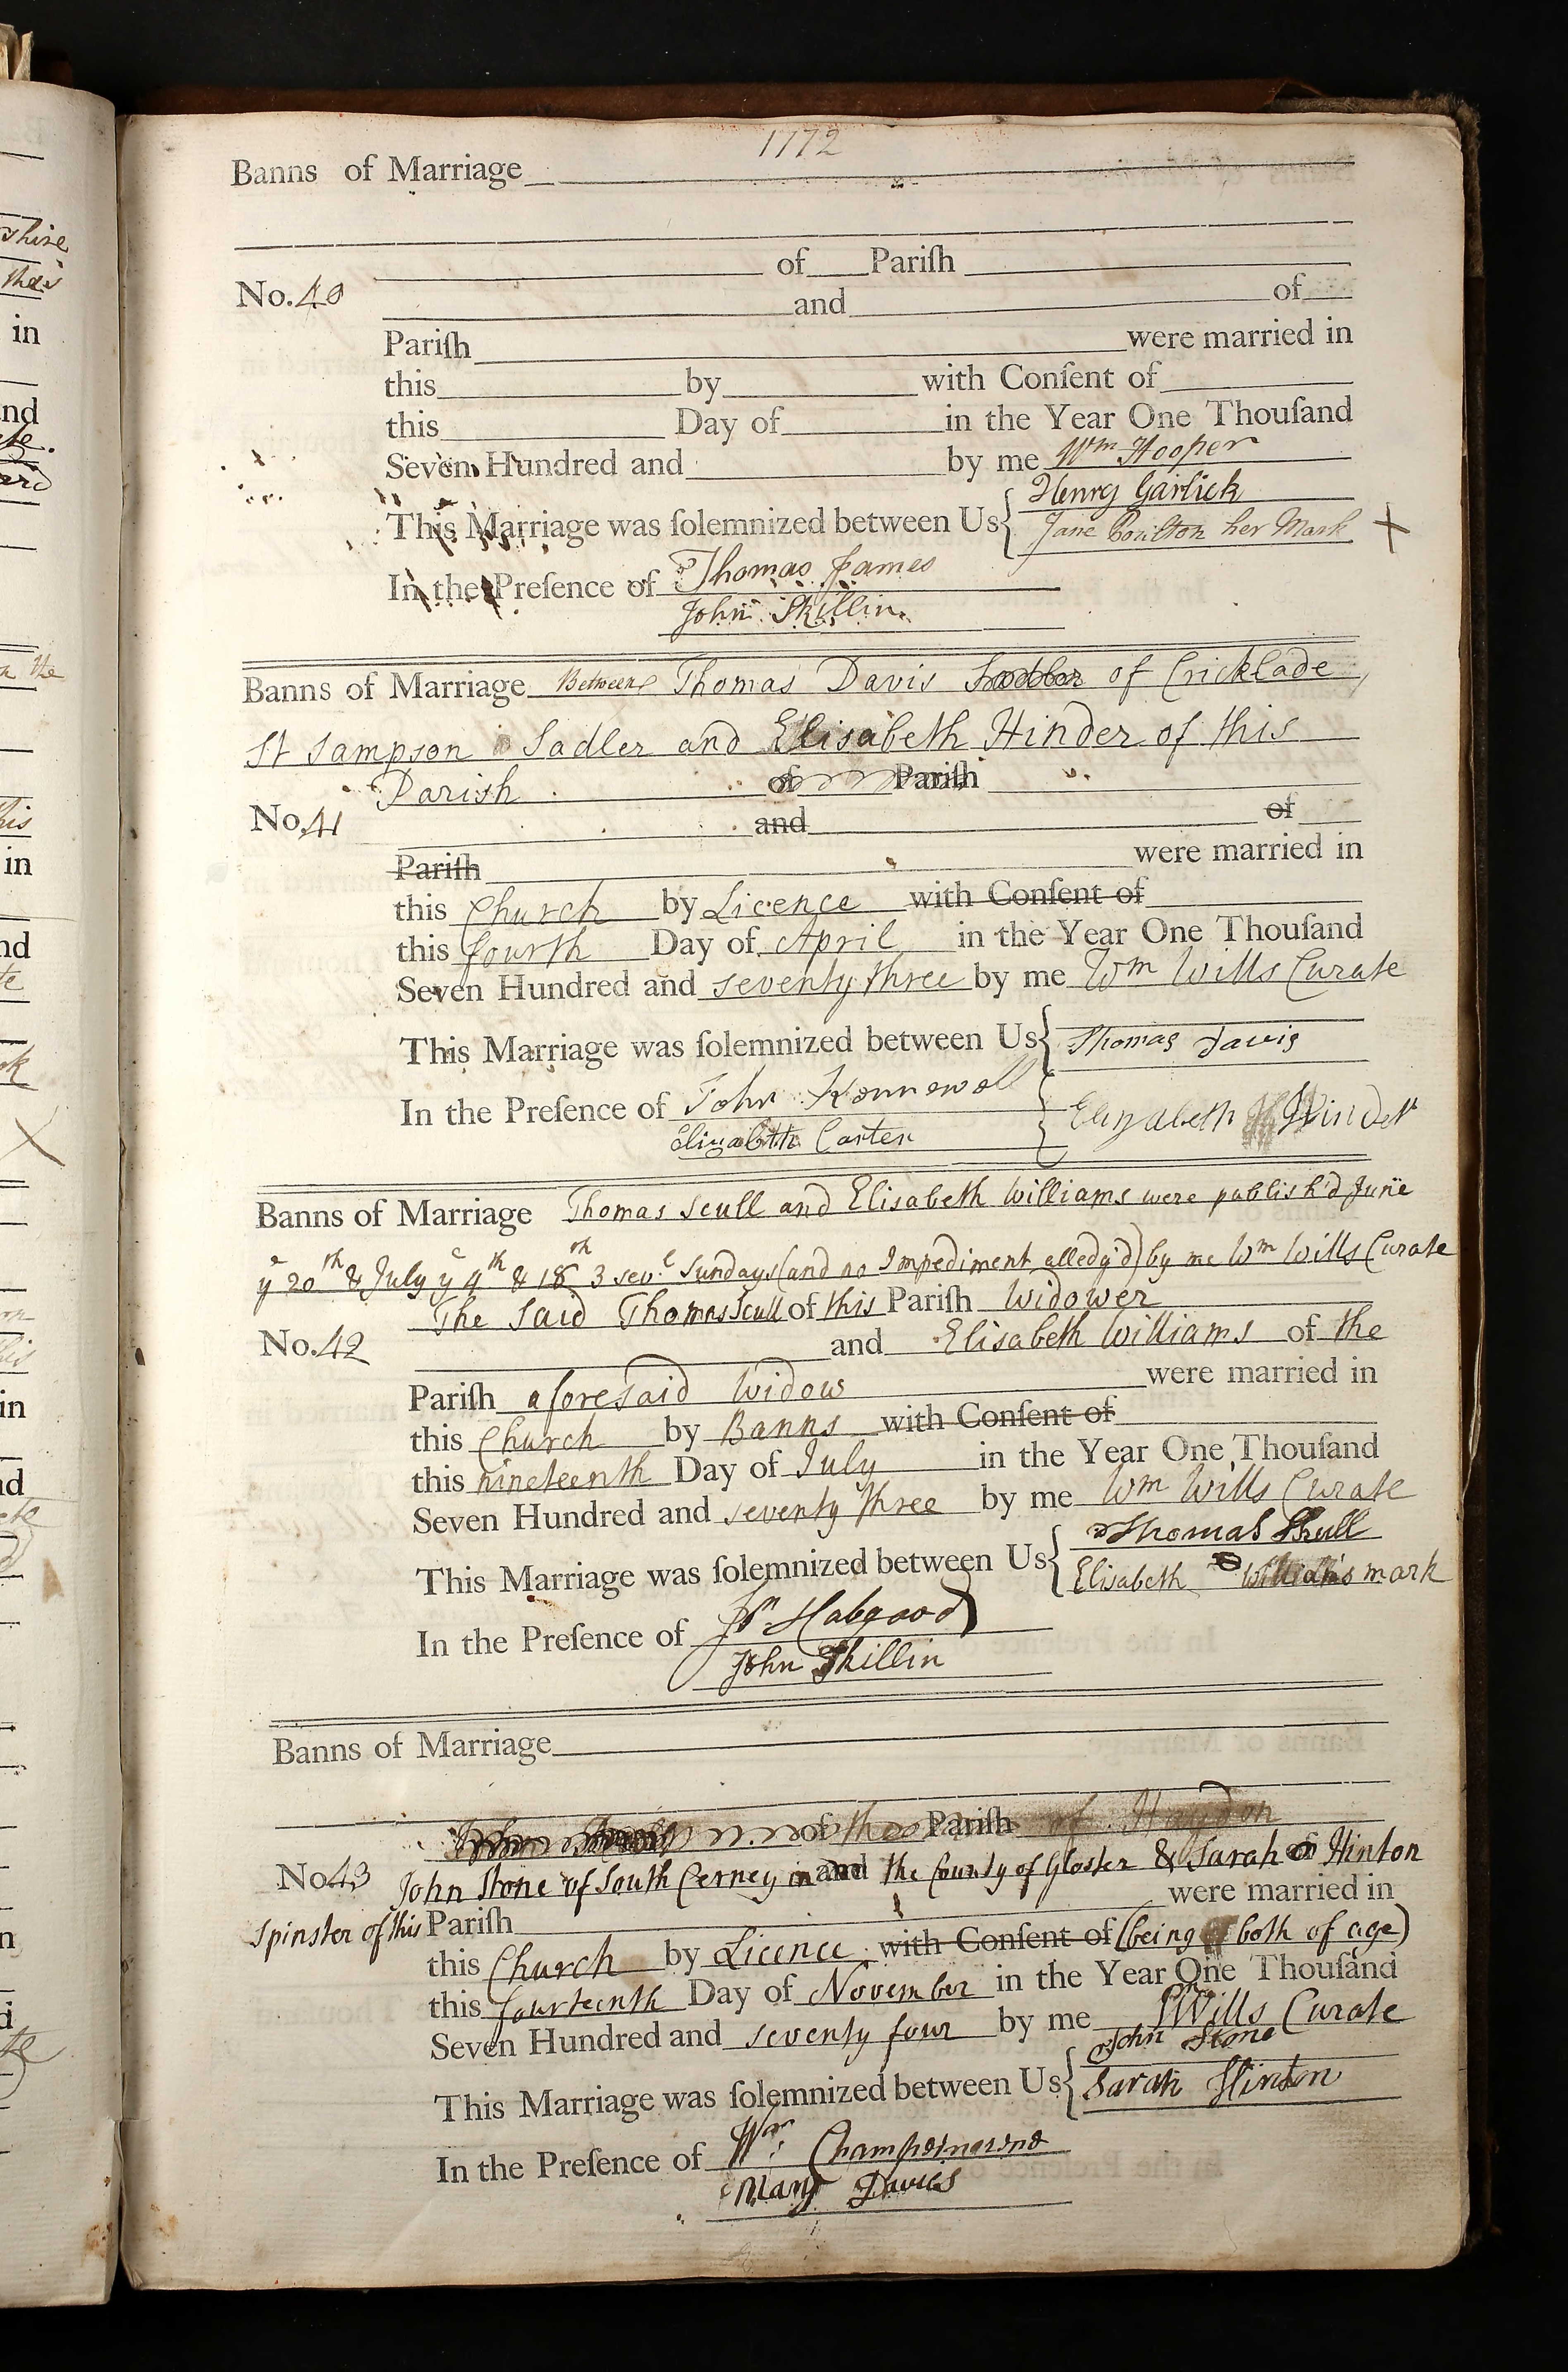 1772
Banns of Marriage
of Pariſh
No. 40 and of
Pariſh were married in
this by with Conſent of
this Day of in the Year One Thouſand
Seven Hundred and by me Wm Hooper
Henry Garlick
This Marriage was ſolemnized between Us Jane Boulton her Mark X
In the Preſence of Thomas James
John Skillin
Banns of Marriage Between Thomas Davis of Cricklade
St Sampson Sadler and Elisabeth Hinder of this
Parish of Pariſh
No. 41 and of
Pariſh were married in
this Church by Licence with Conſent of
this fourth Day of April in the Year One Thouſand
Seven Hundred and seventy three by me Wm Wills Curate
This Marriage was ſolemnized between Us Thomas Davis
In the Preſence of John Elizabeth Hinder
Elizabeth Carter
Banns of Marriage Thomas Scull and Elisabeth Williams were publish'd June
ye 20th & July ye 4th & 18th 3 sevl Sundays (and no Impediment alledg'd) by me Wm Wills Curate
The said Thomas Scull of this Pariſh Widower
No. 42 and Elisabeth Williams of the
Pariſh aforesaid Widow were married in
this Church by Banns with Conſent of
this nineteenth Day of July in the Year One Thouſand
Seven Hundred and seventy three by me Wm Wills Curate
Thomas Skull
This Marriage was ſolemnized between Us Elisabeth Williams mark
In the Preſence of Habgood
John Skillin
Banns of Marriage
of the Pariſh of Haydon
No. 43 John Stone of South Cerney in and the County of Gloster & Sarah of Hinton
were married in
Spinster of this Pariſh
this Church by Licence with Conſent of (being both of age)
this fourteenth Day of November in the Year One Thouſand
Seven Hundred and seventy four by me Wm Wills Curate
John Stone
This Marriage was ſolemnized between Us Sarah Hinton
In the Preſence of Wm
Mary Davies